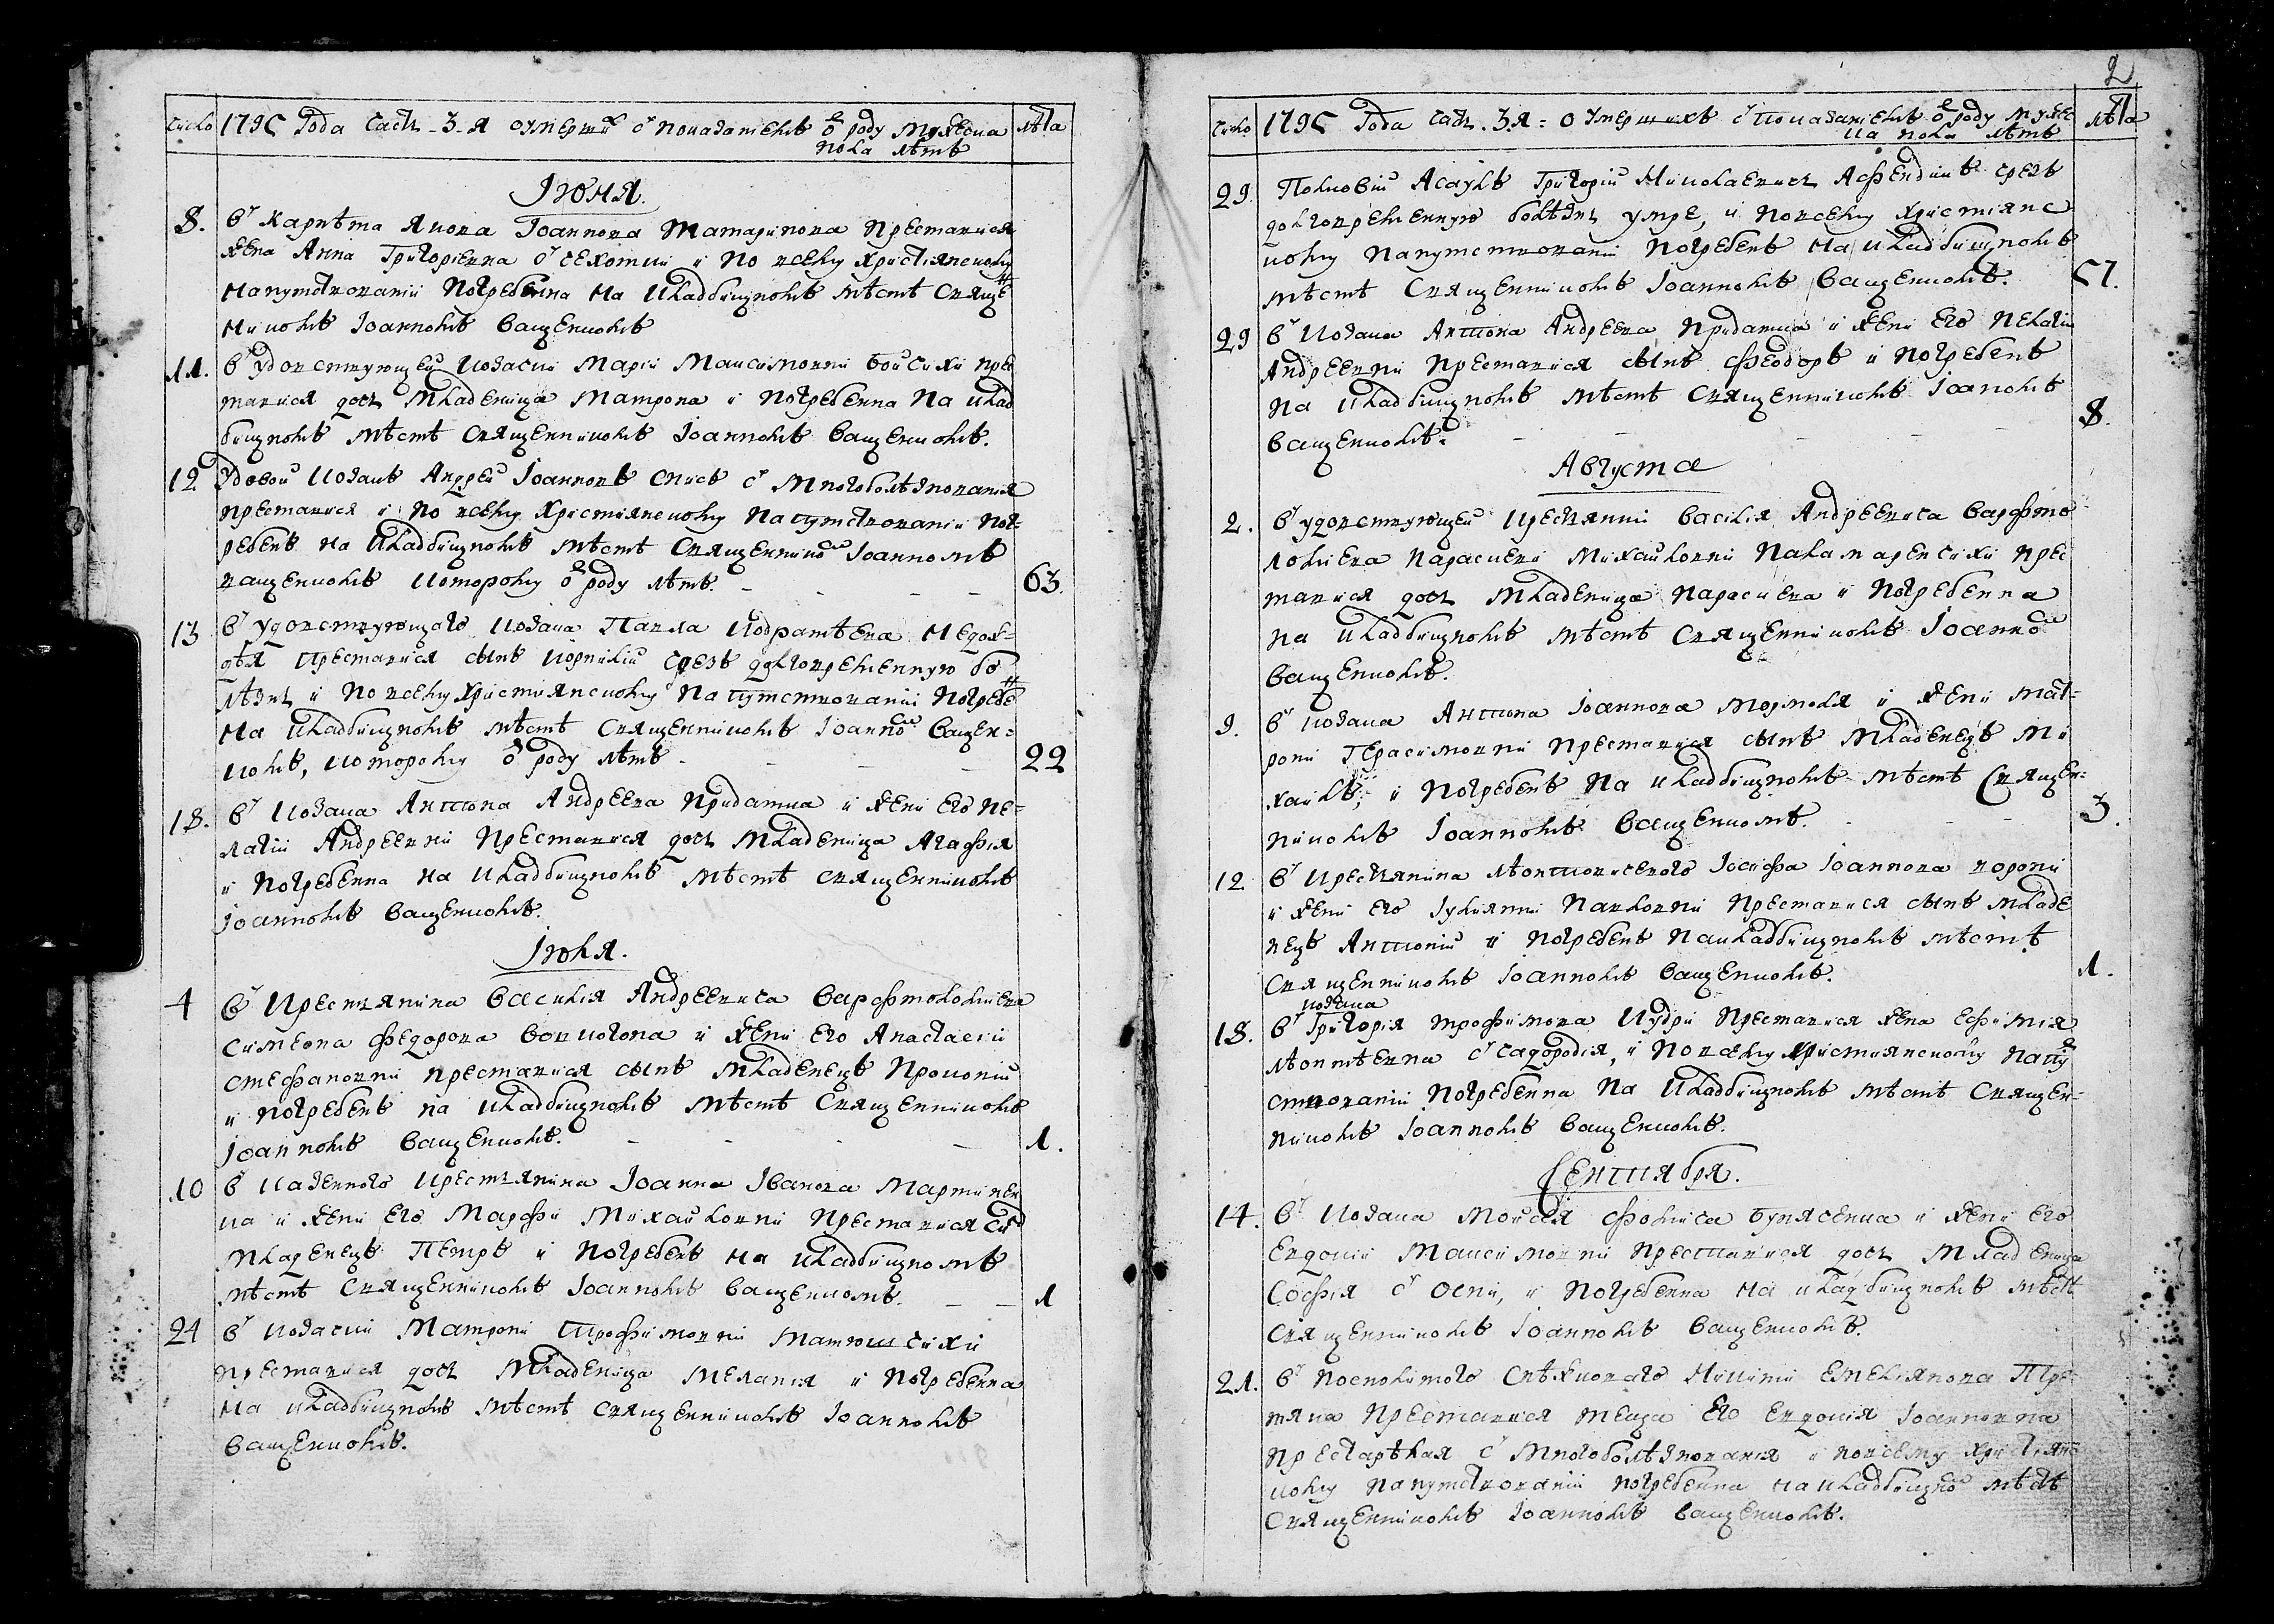 число 1795 года часть 3-я о умершихъ с показаниемъ о роду мужескаго лѣта
пола лѣтъ
Іюня
8. В карнѣта якова Іоаннова татаринова преставися
жена Анна Григориевна с сухотки и по всему християнскому
напутствованіи погребенна на кладбищномъ мѣстѣ священ
никомъ Іоанномъ Ващенкомъ
11. В удовствующей козачки Маріи Максимовни Бойчихи прес
тавися дочь младеница Матрона и погребенна на клад
бищномъ мѣстѣ священникомъ Іоанномъ Ващенкомъ.
12 Удовой козакъ Андрей Іоанновъ с многоболѣзнования
преставися и по всему християнскому напутствованіи пог-
ребенъ на кладбищномъ мѣстѣ священникомъ Іоанномъ
Ващенкомъ которому от роду лѣтъ. 63.
13 В удовствующаго козака Павла Кодратѣева
преставися сынъ Корнилій чрезъ долговременную бо
лѣзнь и по всему християнскому напутствованіи погребен
на кладбищномъ мѣстѣ священникомъ Іоанномъ Ващен-
комъ, которому от роду лѣтъ 22
18. В козака Антона Андреева Придатка и жени его Пе-
лагіи Андреевни преставися дочь младеница Агафия
и погребенна на кладбищномъ мѣстѣ священникомъ
Іоанномъ Ващенкомъ.
Іюля.
4 В крестянина Василія Андреевича Варфтоломиева
Симеона Федорова и жени его Анастасіи
Стефановни преставися сынъ младенецъ Прокопій
и погребенъ на кладбищномъ мѣстѣ священникомъ
Іоанномъ Ващенкомъ. 1.
10 В казенного крестянина Іоанна Іванова Мартинен
ка и жени его Марфи Михайловни преставися синъ
младенецъ Петръ и погребенъ на кладбищномъ
мѣстѣ священникомъ Іоанномъ Ващенкомъ. 1
24 В козачки Матрони Трофимовни Матюшчихи
преставися дочь младеница Мелания и погребенна
на кладбищномъ мѣстѣ священникомъ Іоанномъ
Ващенкомъ.
2
число 1795 года часть 3-я о умершихъ с показаниемъ о роду мужес лѣта
ка пола лѣтъ
29. Полковій Асаулъ Григорій Николаевичъ Афендикъ чрезъ
долговременную болѣзнь умре, и по всему християнс
кому напутствованіи погребенъ на кладбищномъ
мѣстѣ священникомъ Іоанномъ Ващенкомъ. 57.
29 В козака Антона Андреева Придатка и жени его Пелагіи
Андреевни преставися сынъ Феодоръ и погребенъ
на кладбищномъ мѣстѣ священникомъ Іоаномъ
Ващенкомъ. 8.
Августа
2. В удовствующей крестянки Василія Андреевича Варфто
ломиева Параскеви Михайловни прес
тавися дочь младеница Параскева и погребенна
на кладбищномъ мѣстѣ священникомъ Іоанномъ
Ващенкомъ.
9. В козака Антона Іоаннова и жени Мат-
рони Герасимовни преставися сынъ младенецъ Ми
хаилъ, и погребенъ на кладбищномъ мѣстѣ священ-
никомъ Іоанномъ Ващенкомъ. 3.
12 В крестянина Іосифа Іоаннова
и жени его Іулиянни Павловни преставися сынъ младе
нецъ Антоній и погребенъ на кладбищномъ мѣстѣ
священникомъ Іоанномъ Ващенкомъ. 1.
козака
18. В Григорія Трофимова Кудри преставися жена Ефимия
Леонтѣевна и по всему християнскому напут
ствованіи погребенна на кладбищномъ мѣстѣ священ-
никомъ Іоанномъ Ващенкомъ.
Сентября.
14. В козака Мойсея Фомича и жени его
Евдокіи Максимовни преставися дочь младеница
София с оспи, и погребенна на кладбищномъ мѣстѣ
священникомъ Іоанномъ Ващенкомъ.
21. В посполитого Никити Емелиянова
преставися теща его Евдокия Іоанновна
престарѣлая с многоболѣзнования и по всему християнс
кому напутствованіи погребенна на кладбищномъ мѣстѣ
священникомъ Іоанномъ Ващенкомъ.